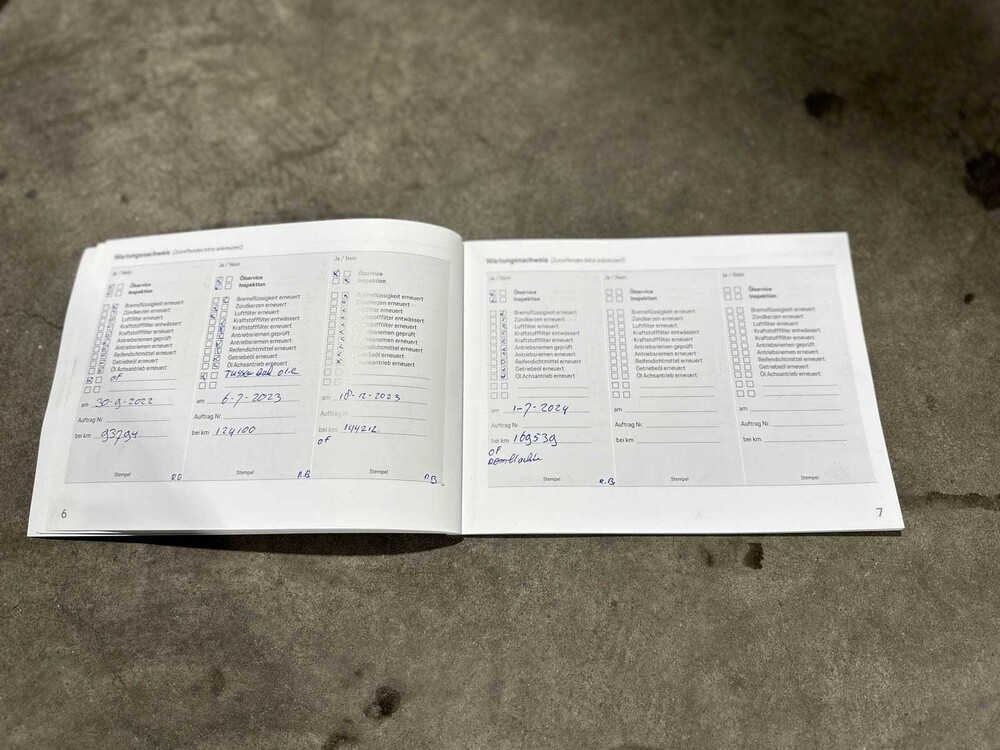 Wartungsnachweis (Zutreffendes bitte ankreuzen!)
Ja / Nein
Ölservice
Inspektion
Bremsflüssigkeit erneuert
Zündkerzen erneuert
Luftfilter erneuert
Kraftstofffilter entwässert
Kraftstofffilter erneuert
Antriebsriemen geprüft
Antriebsriemen erneuert
Reifendichtmittel erneuert
Getriebeöl erneuert
Öl Achsantrieb erneuert
OF
am 30-9-2022
Auftrag Nr.
bei km 93794
Stempel
Ja / Nein
Ölservice
Inspektion
Bremsflüssigkeit erneuert
Zündkerzen erneuert
Luftfilter erneuert
Kraftstofffilter entwässert
Kraftstofffilter erneuert
Antriebsriemen geprüft
Antriebsriemen erneuert
Reifendichtmittel erneuert
Getriebeöl erneuert
Öl Achsantrieb erneuert
am 6-7-2023
Auftrag Nr.
bei km 124100
Stempel
R.B
Ja / Nein
Ölservice
Inspektion
Bremsflüssigkeit erneuert
erneuert
Luftfilter erneuert
entwässert
erneuert
geprüft
erneuert
erneuert
erneuert
erneuert
am 18-12-2023
Auftrag Nr.
bei km 144212
OF
Stempel
R.B
6
Wartungsnachweis (Zutreffendes bitte ankreuzen!)
Ja / Nein
Ölservice
Inspektion
Bremsflüssigkeit erneuert
Zündkerzen erneuert
Luftfilter erneuert
Kraftstofffilter entwässert
Kraftstofffilter erneuert
Antriebsriemen geprüft
Antriebsriemen erneuert
Reifendichtmittel erneuert
Getriebeöl erneuert
Öl Achsantrieb erneuert
am 1-7-2024
Auftrag Nr.
bei km 169539
OF
Stempel
R.B
Ja / Nein
Ölservice
Inspektion
Bremsflüssigkeit erneuert
Zündkerzen erneuert
Luftfilter erneuert
Kraftstofffilter entwässert
Kraftstofffilter erneuert
Antriebsriemen geprüft
Antriebsriemen erneuert
Reifendichtmittel erneuert
Getriebeöl erneuert
Öl Achsantrieb erneuert
am
Auftrag Nr.
bei km
Stempel
Ja / Nein
Ölservice
Inspektion
Bremsflüssigkeit erneuert
Zündkerzen erneuert
Luftfilter erneuert
Kraftstofffilter entwässert
Kraftstofffilter erneuert
Antriebsriemen geprüft
Antriebsriemen erneuert
Reifendichtmittel erneuert
Getriebeöl erneuert
Öl Achsantrieb erneuert
am
Auftrag Nr.
bei km
Stempel
7